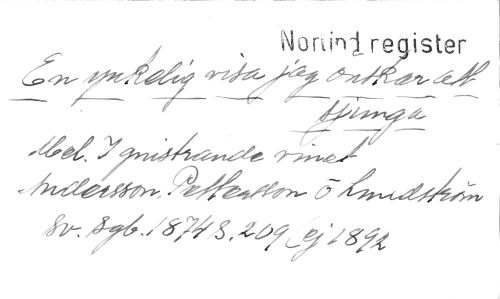 Norlind register
En ynkelig visa jag önskar att
sjunga
Mel. I gnistrande vinet
Andersson, Pettersson o Lundström
Sv. Sgb. 1874 S. 209 (ej 1892